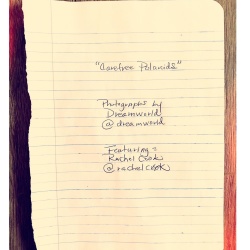 "Carefree Polaroids"
Photographs by
Dreamworld
@dreamworld
Featuring :
Rachel Cook
@rachelcook